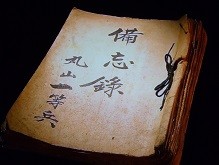 備忘錄
丸山一等兵